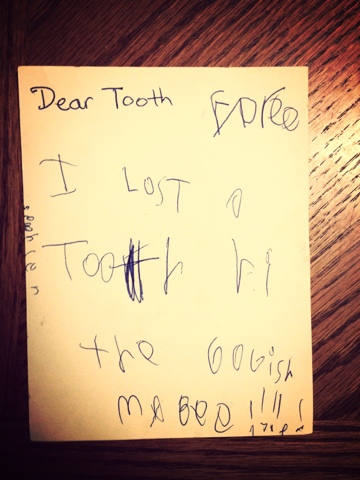 Dear Tooth Faree
I LOST a
Tooth bi
the Gouish
MaBee !!!!!